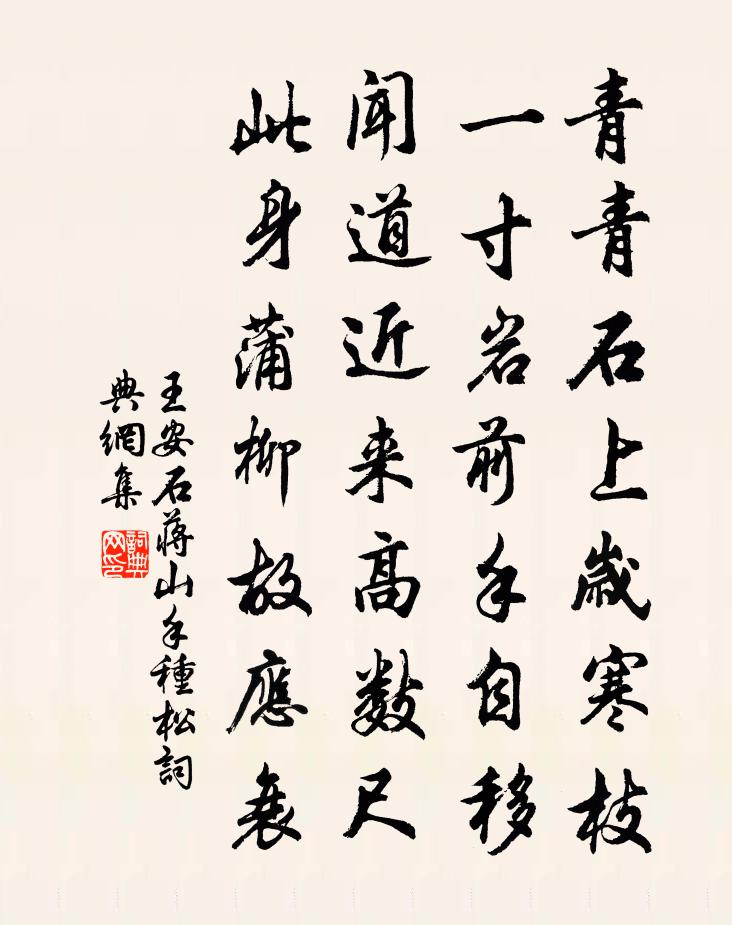 青青石上歲寒枝
一寸岩前手自移
聞道近来高數尺
此身蒲柳故應衰
王安石蔣山手種松詞
典網集
詞典
网印